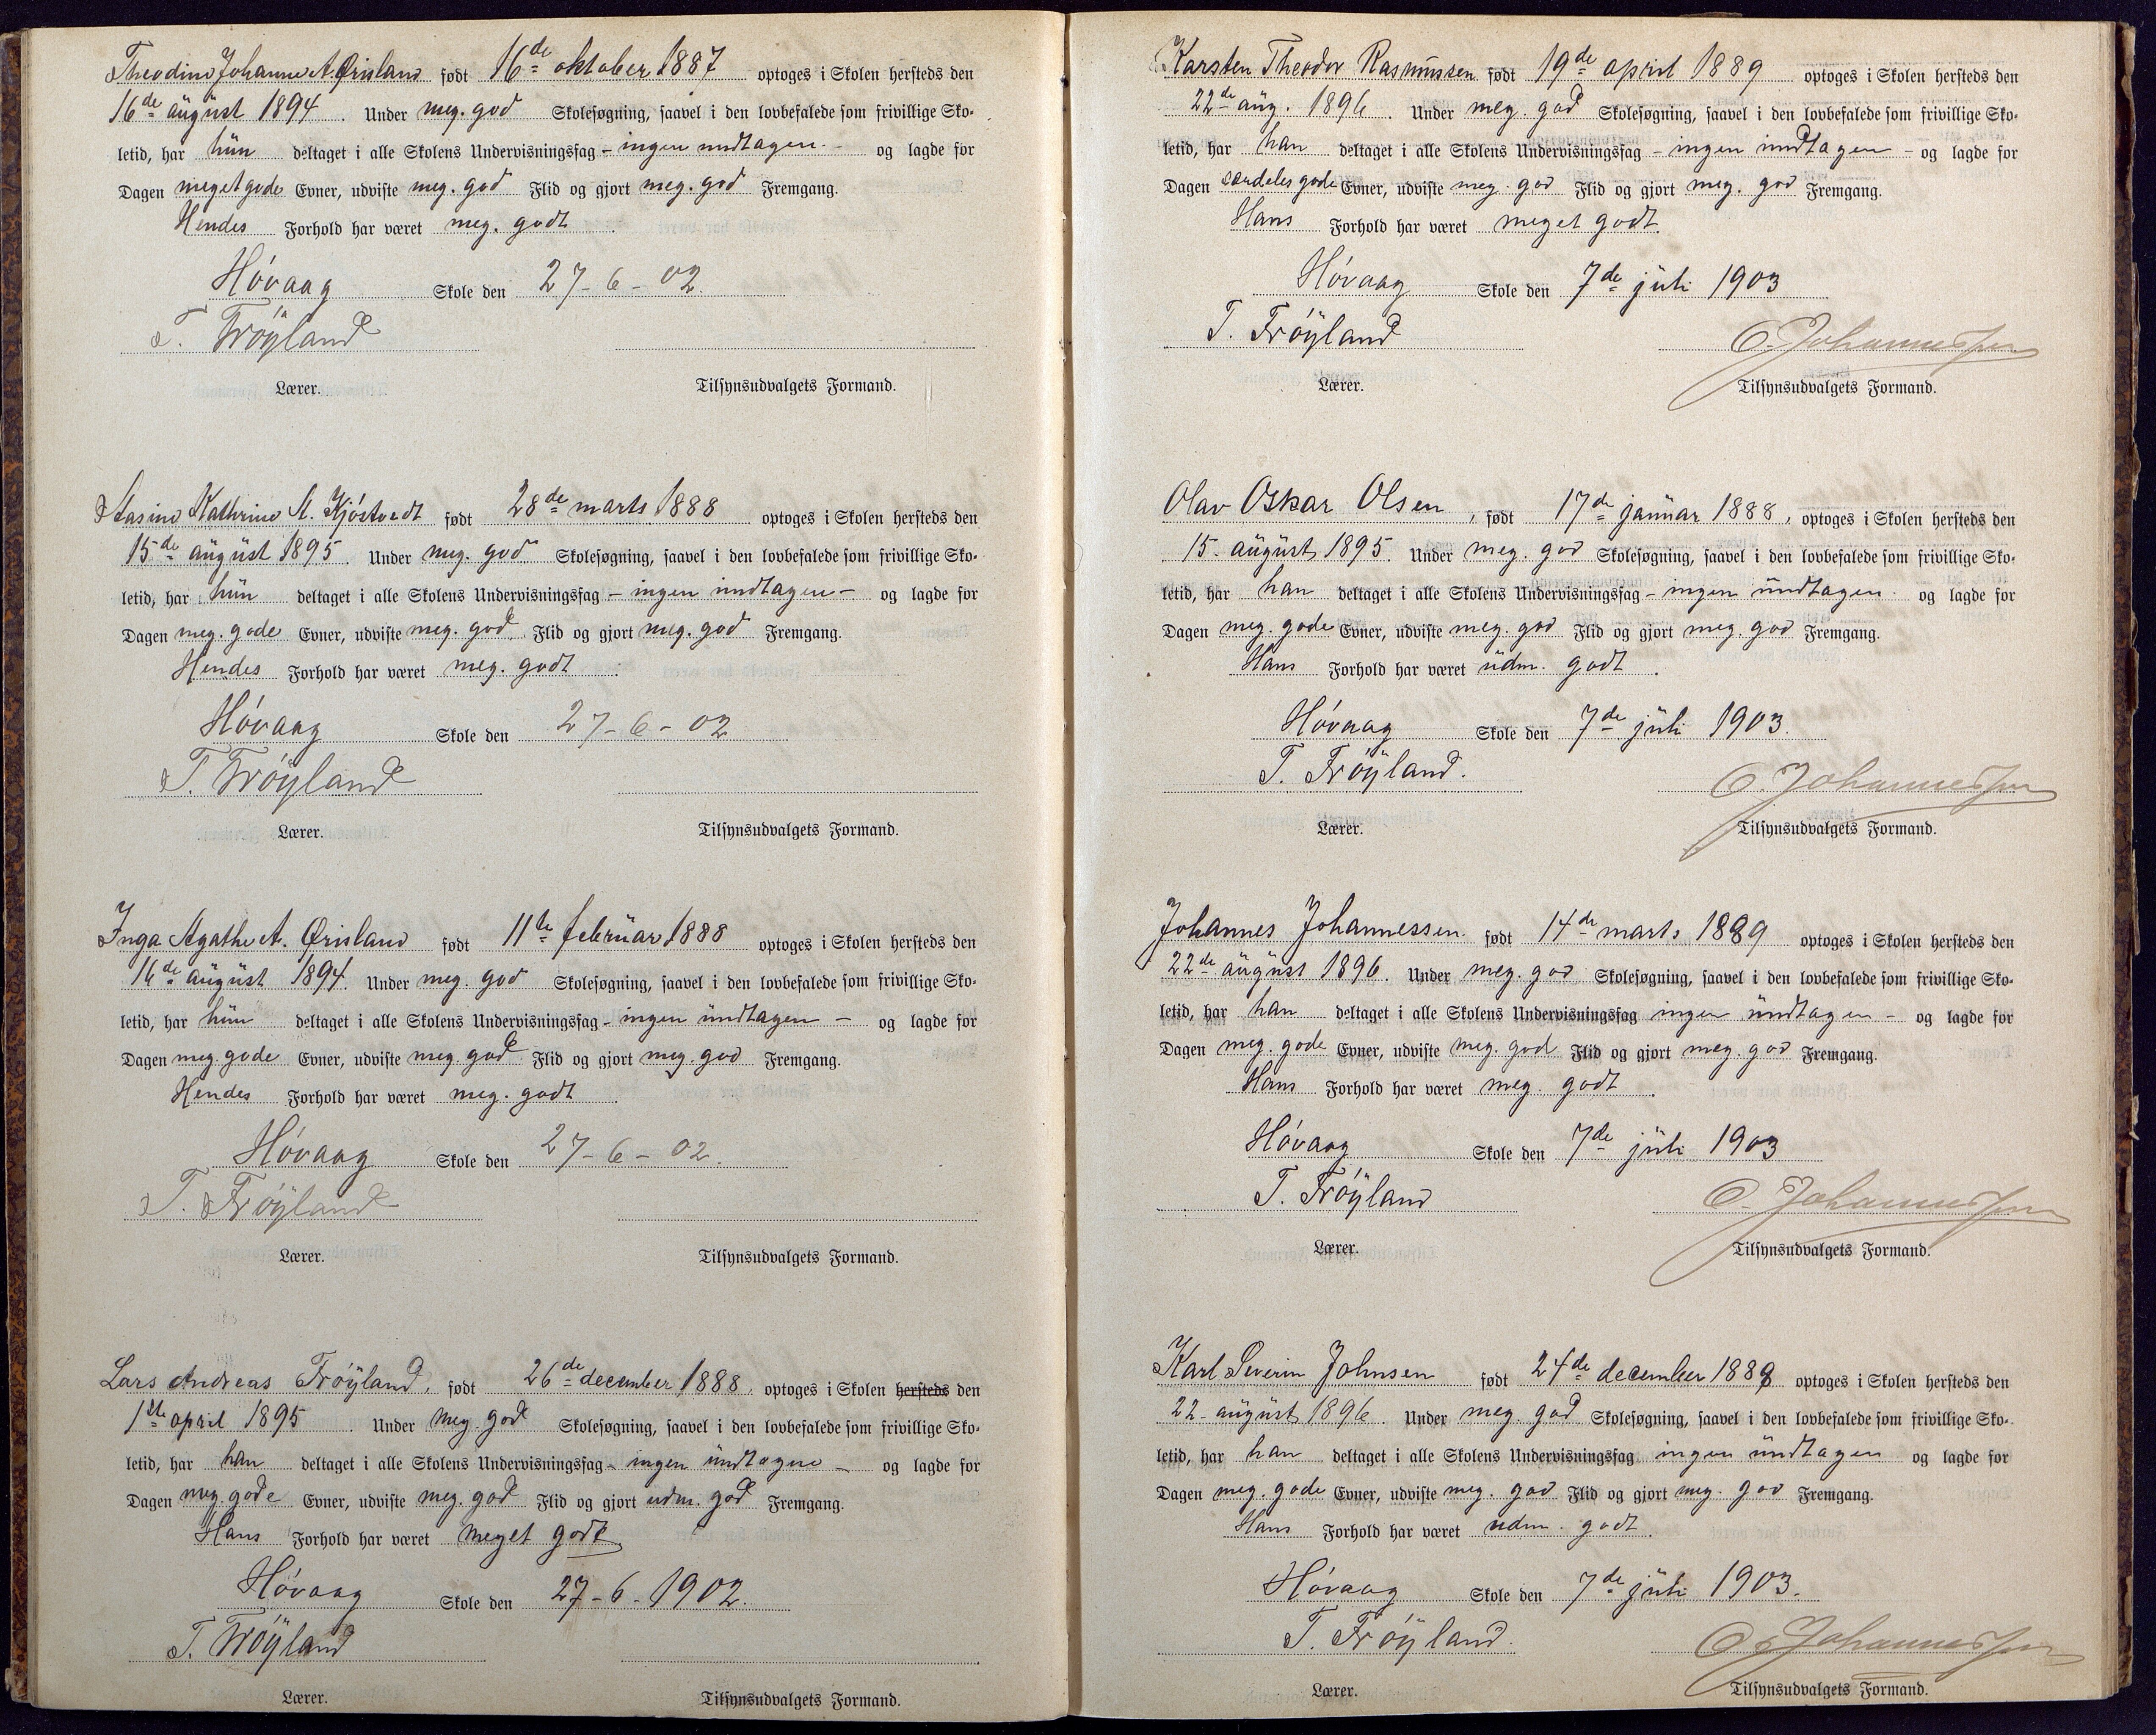 Theodine Johanne A. Ørisland født 16de oktober 1887 optoges i Skolen hersteds den
16de august 1894. Under meg. god Skolesøgning, saavel i den lovbefalede som frivillige Sko-
letid, har hun deltaget i alle Skolens Undervisningsfag – ingen undtagen – og lagde for
Dagen meget gode Evner, udviste meg. god Flid og gjort meg. god Fremgang.
Hendes Forhold har været meg. godt.
Hóvaag Skole den 27-6-02.
T. Tróyland
Lærer. Tilsynsudvalgets Formand.
Stasine Kathrine A. Kjóstvedt født 28de marts 1888 optoges i Skolen hersteds den
15de august 1895. Under meg. god Skolesøgning, saavel i den lovbefalede som frivillige Sko-
letid, har hun deltaget i alle Skolens Undervisningsfag – ingen undtagen – og lagde for
Dagen meg. gode Evner, udviste meg. god Flid og gjort meg. god Fremgang.
Hendes Forhold har været meg. godt.
Hóvaag Skole den 27-6-02
T. Tróyland
Lærer. Tilsynsudvalgets Formand.
Inga Agathe A. Ørisland født 11te februar 1888 optoges i Skolen hersteds den
16de august 1894. Under meg. god Skolesøgning, saavel i den lovbefalede som frivillige Sko-
letid, har hun deltaget i alle Skolens Undervisningsfag – ingen undtagen – og lagde for
Dagen meg. gode Evner, udviste meg. god Flid og gjort meg. god Fremgang.
Hendes Forhold har været meg. godt.
Hóvaag Skole den 27-6-02.
T. Tróyland
Lærer. Tilsynsudvalgets Formand.
Lars Andreas Tróyland, født 26de december 1888, optoges i Skolen hersteds den
1ste april 1895. Under meg. god Skolesøgning, saavel i den lovbefalede som frivillige Sko-
letid, har han deltaget i alle Skolens Undervisningsfag – ingen undtagen – og lagde for
Dagen meg. gode Evner, udviste meg. god Flid og gjort udm. god Fremgang.
Hans Forhold har været meget godt
Hóvaag Skole den 27-6-1902.
T. Tróyland
Lærer. Tilsynsudvalgets Formand.
Karsten Theodor Rasmussen født 19de april 1889 optoges i Skolen hersteds den
22de aug. 1896. Under meg. god Skolesøgning, saavel i den lovbefalede som frivillige Sko-
letid, har han deltaget i alle Skolens Undervisningsfag – ingen undtagen – og lagde for
Dagen særdeles gode Evner, udviste meg. god Flid og gjort meg. god Fremgang.
Hans Forhold har været meget godt.
Hóvaag Skole den 7de juli 1903
T. Tróyland O. Johannessen
Lærer. Tilsynsudvalgets Formand.
Olav Oskar Olsen, født 17de januar 1888, optoges i Skolen hersteds den
15. august 1895. Under meg. god Skolesøgning, saavel i den lovbefalede som frivillige Sko-
letid, har han deltaget i alle Skolens Undervisningsfag – ingen undtagen. og lagde for
Dagen meg. gode Evner, udviste meg. god Flid og gjort meg. god Fremgang.
Hans Forhold har været udm. godt.
Hóvaag Skole den 7de juli 1903.
T. Tróyland. O. Johannessen
Lærer. Tilsynsudvalgets Formand.
Johannes Johannessen. født 14de marts 1889 optoges i Skolen hersteds den
22de august 1896. Under meg. god Skolesøgning, saavel i den lovbefalede som frivillige Sko-
letid, har han deltaget i alle Skolens Undervisningsfag ingen undtagen – og lagde for
Dagen meg. gode Evner, udviste meg. god Flid og gjort meg. god Fremgang.
Hans Forhold har været meg. godt.
Hóvaag Skole den 7de juli 1903
T. Tróyland O. Johannessen
Lærer. Tilsynsudvalgets Formand.
Karl Severin Johnsen født 24de december 1888 optoges i Skolen hersteds den
22. august 1896. Under meg. god Skolesøgning, saavel i den lovbefalede som frivillige Sko-
letid, har han deltaget i alle Skolens Undervisningsfag ingen undtagen og lagde for
Dagen meg. gode Evner, udviste meg. god Flid og gjort meg. god Fremgang.
Hans Forhold har været udm. godt.
Hóvaag Skole den 7de juli 1903.
T. Tróyland. O. Johannessen
Lærer. Tilsynsudvalgets Formand.